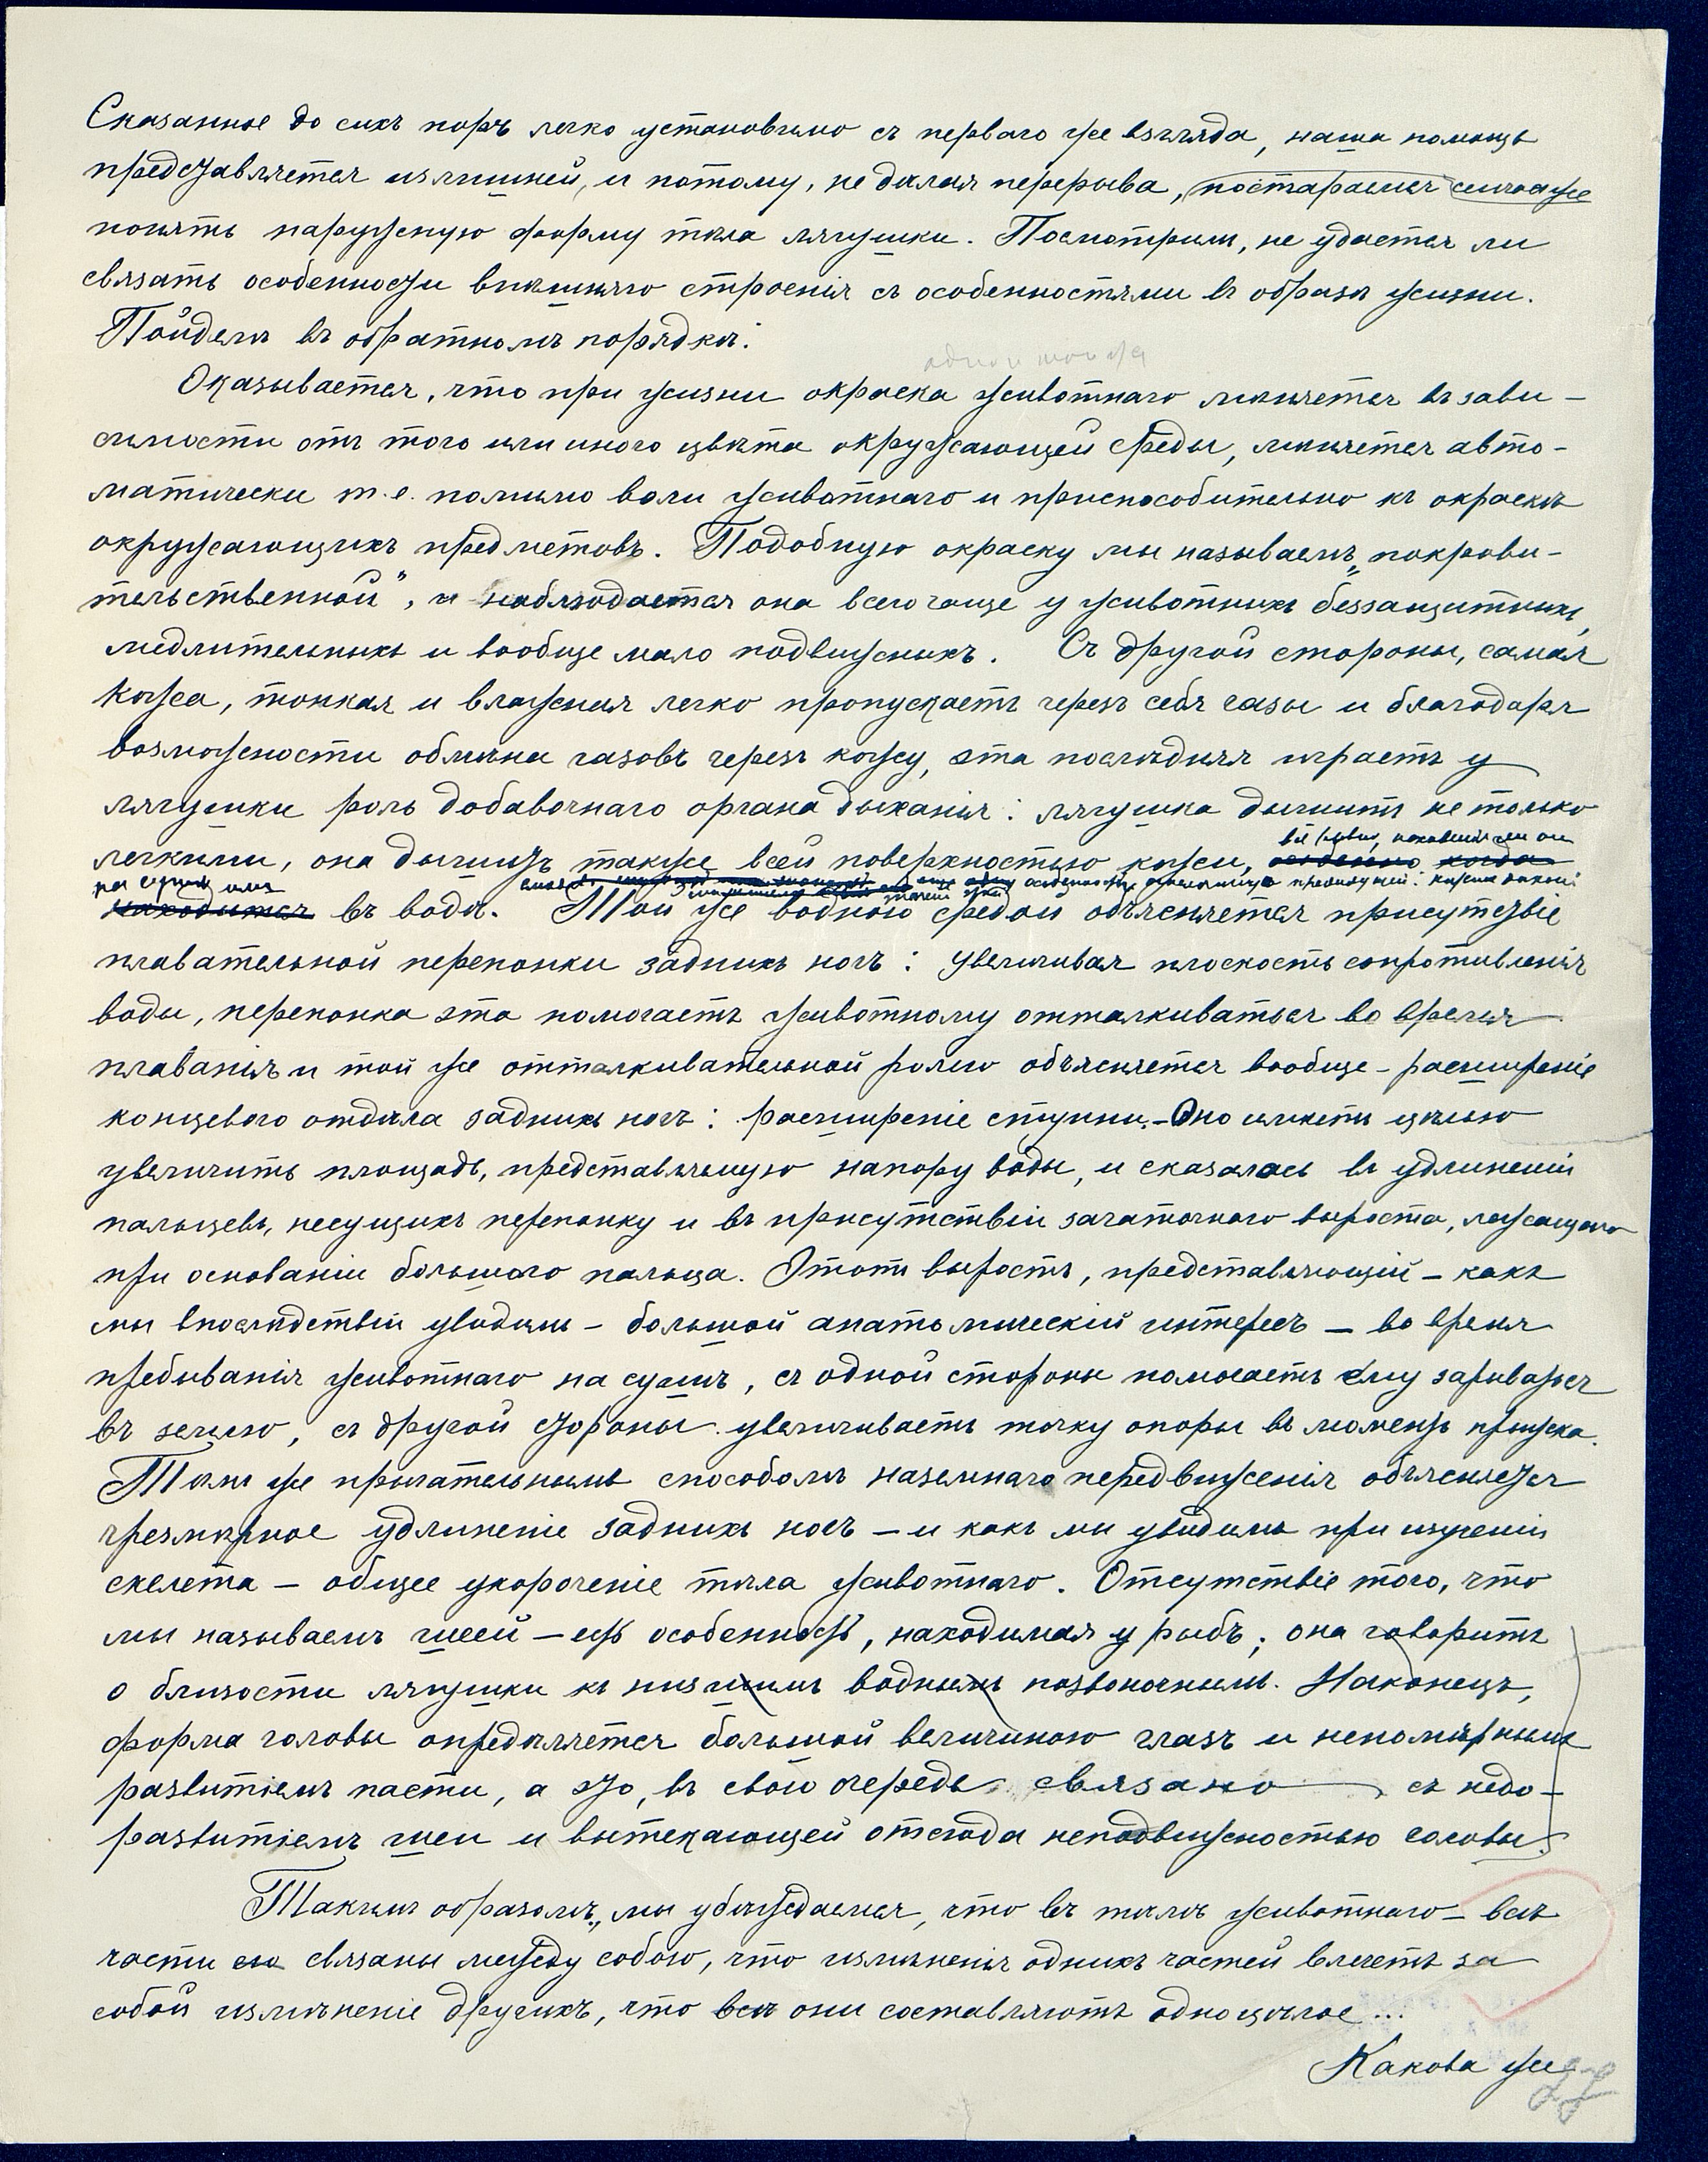 Сказанное до сихъ поръ легко установимо съ перваго же взгляда, наша помощь
представляется излишней, и потому, не дѣлая перерыва, постараемся сейчасъ же
понять наружную форму тѣла лягушки. Посмотримъ, не удастся ли
связать особенности внѣшняго строенія съ особенностями въ образѣ жизни.
Пойдемъ въ обратномъ порядкѣ:
Оказывается, что при жизни окраска животнаго мѣняется въ зави-
симости отъ того или иного цвѣта окружающей среды, мѣняется авто-
матически т.е. помимо воли животнаго и приспособительно къ окраскѣ
окружающихъ предметовъ. Подобную окраску мы называемъ „покрови-
тельственной", и наблюдается она всего чаще у животныхъ беззащитныхъ,
медлительныхъ и вообще мало подвижныхъ. Съ другой стороны, самая
кожа, тонкая и влажная легко пропускаетъ черезъ себя газы и благодаря
возможности обмѣна газовъ черезъ кожу, эта послѣдняя играетъ у
лягушки роль добавочнаго органа дыханія: лягушка дышитъ не только
легкими, она дышитъ также всей поверхностью кожи, особенно когда
на сушѣ или
находится въ водѣ. Той же водною средой объясняется присутствіе
плавательной перепонки заднихъ ногъ: увеличивая плоскость сопротивленія
воды, перепонка эта помогаетъ животному отталкиваться во время
плаванія и той же отталкивательной ролью объясняется вообще - расширеніе
концевого отдѣла заднихъ ногъ: расширеніе ступни. - Оно имѣетъ цѣлью
увеличить площадь, представляемую напору воды, и сказалось въ удлиненіи
пальцевъ, несущихъ перепонку и въ присутствіи зачаточнаго выроста, лежащаго
при основаніи большого пальца. Этотъ выростъ, представляющій - какъ
мы впослѣдствіи увидимъ - большой анатомическій интересъ - во время
пребыванія животнаго на сушѣ, съ одной стороны помогаетъ ему зарываться
въ землю, съ другой стороны увеличиваетъ точку опоры въ моментъ прыжка.
Тѣмъ же прыгательнымъ способомъ наземнаго передвиженія объясняется
чрезмѣрное удлиненіе заднихъ ногъ - и какъ мы увидимъ при изученіи
скелета - общее укороченіе тѣла животнаго. Отсутствіе того, что
мы называемъ шеей - есть особенность, находимая у рыбъ; она говоритъ
о близости лягушки къ низшимъ воднымъ позвоночнымъ. Наконецъ,
форма головы опредѣляется большой величиною глазъ и непомѣрнымъ
развитіемъ пасти, а это, въ свою очередь связано съ недо-
развитіемъ шеи и вытекающей отсюда неподвижностью головы.
Такимъ образомъ, мы убѣждаемся, что въ тѣлѣ животнаго - всѣ
части его связаны между собою, что измѣненія однихъ частей влечетъ за
собой измѣненіе другихъ, что всѣ они составляютъ одно цѣлое ...
Какова же